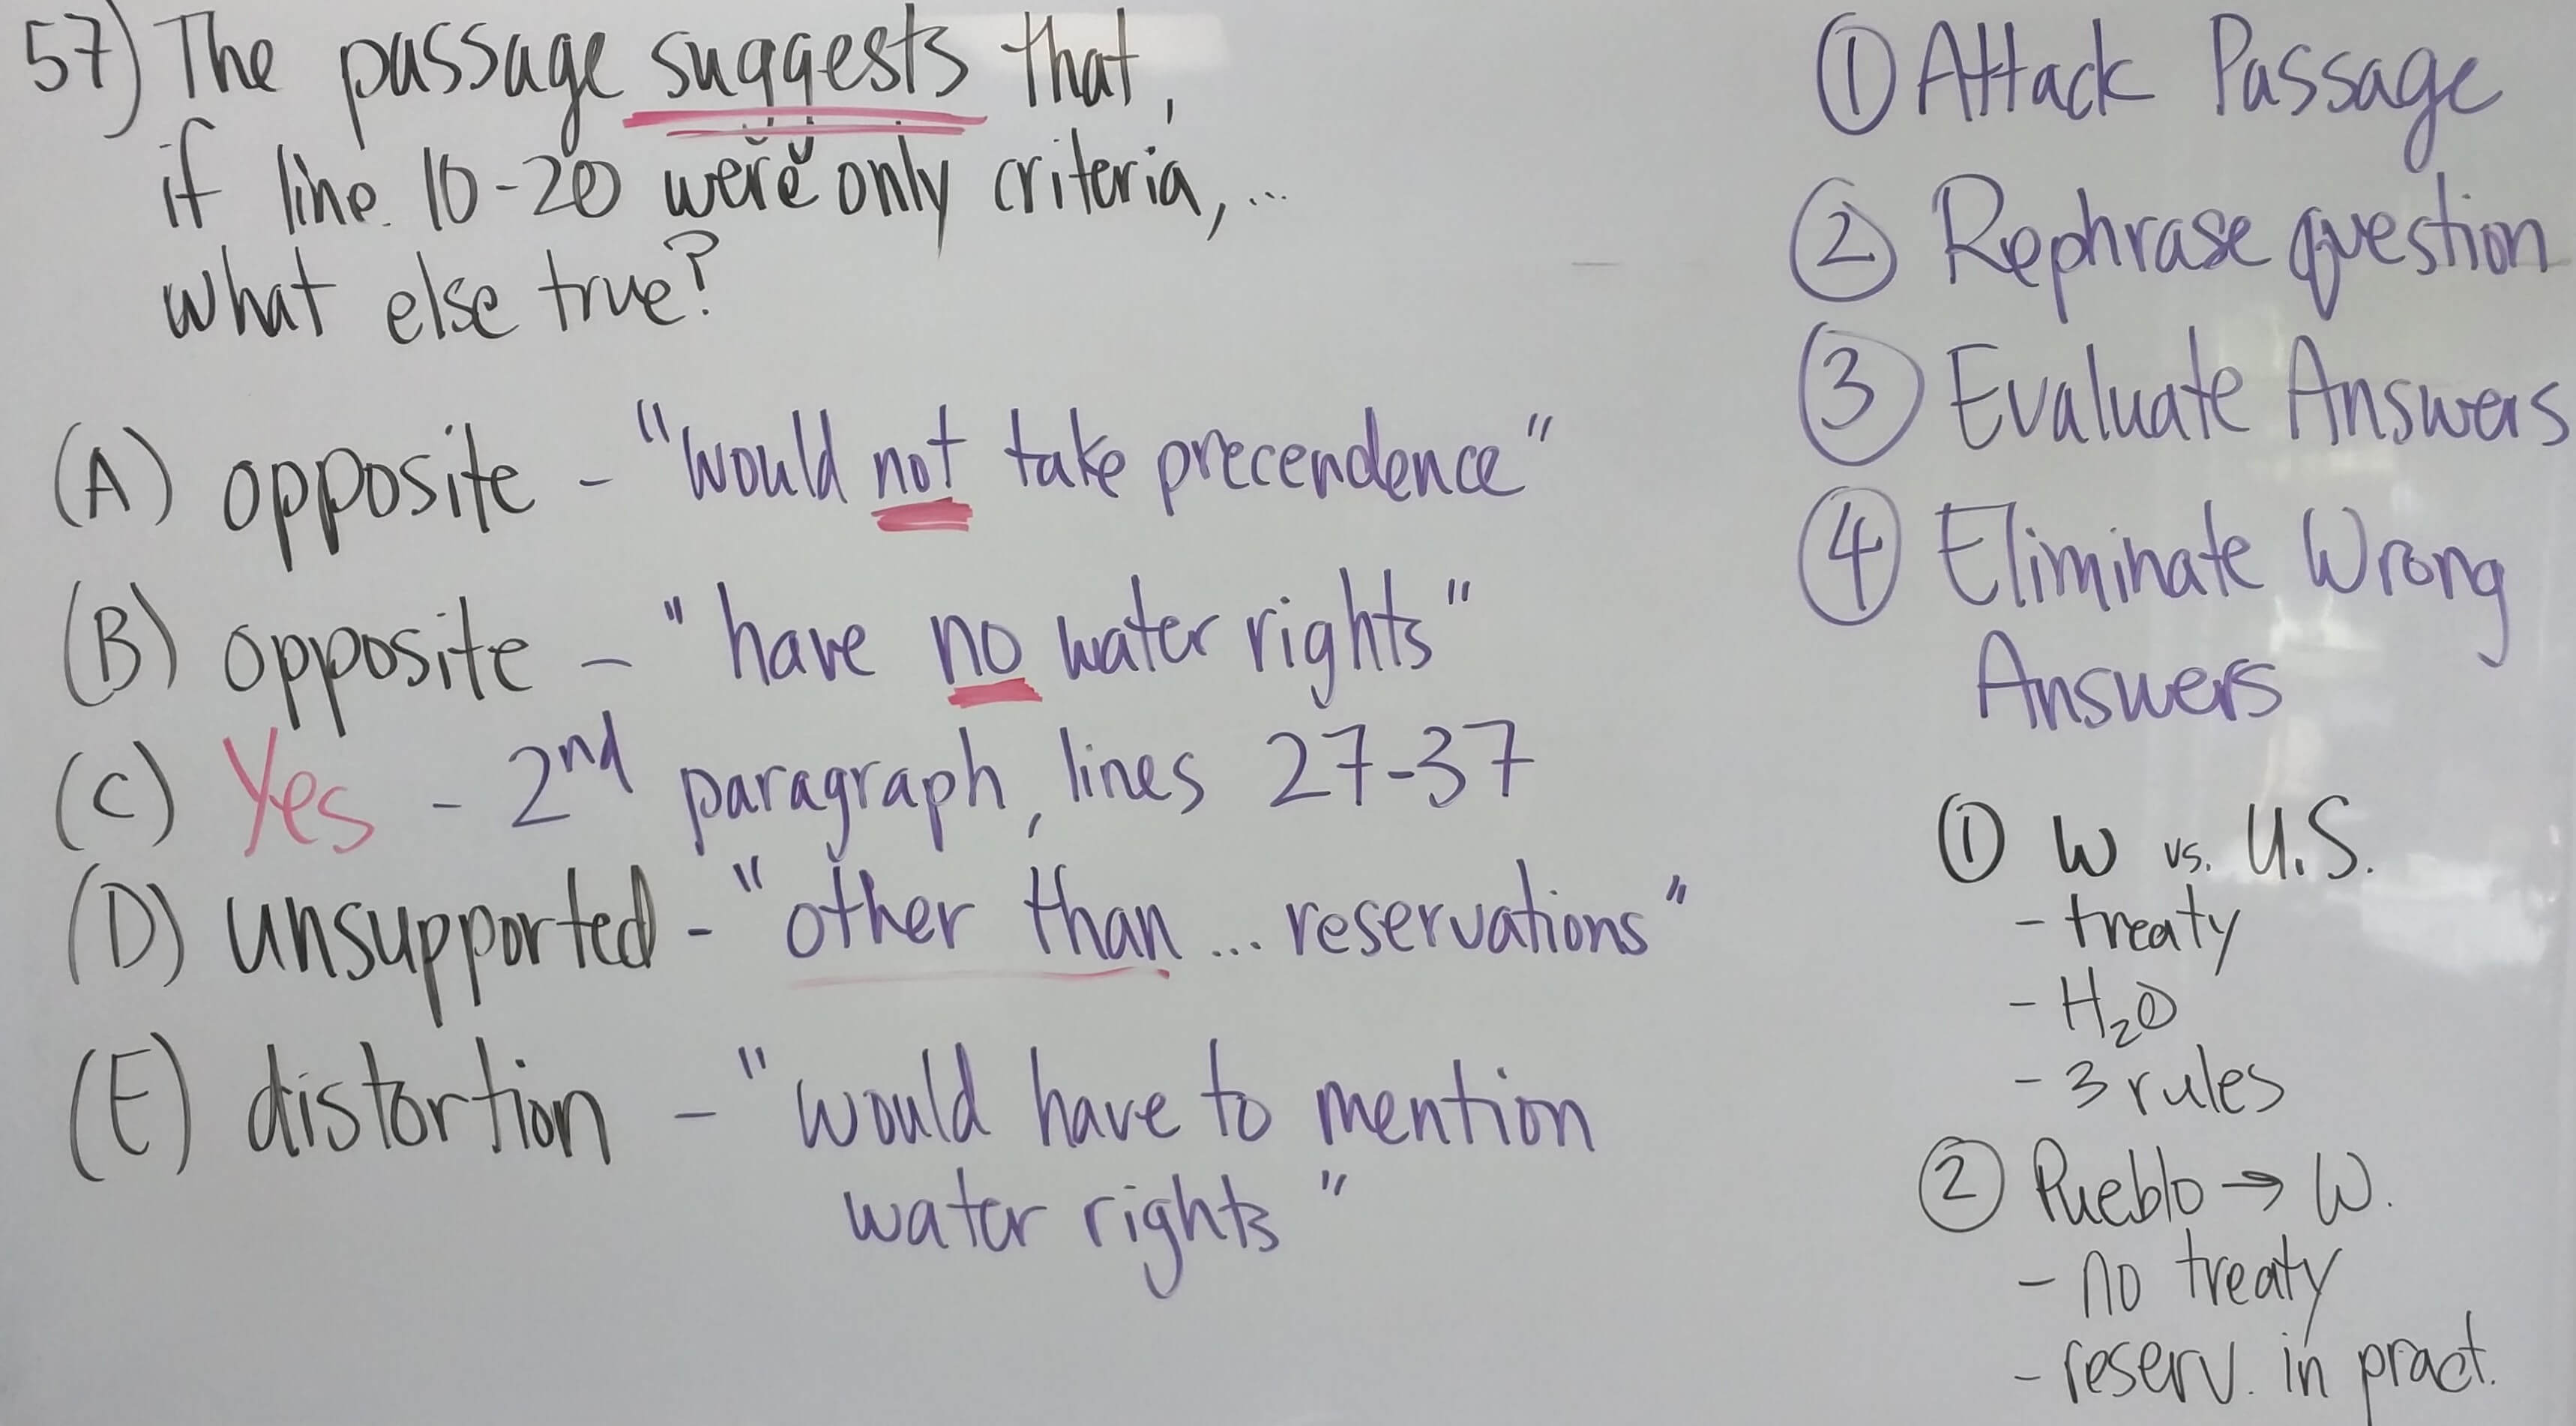 57) The passage suggests that,
if line 10-20 were only criteria, ...
what else true?
(A) opposite - "would not take precendence"
(B) opposite - "have no water rights"
(C) Yes - 2nd paragraph, lines 27-37
(D) unsupported - "other than ... reservations"
(E) distortion - "would have to mention
water rights"
① Attack Passage
② Rephrase question
③ Evaluate Answers
④ Eliminate Wrong
Answers
① W vs. U.S.
- treaty
- H₂O
- 3 rules
② Pueblo → W.
- no treaty
- reserv. in pract.